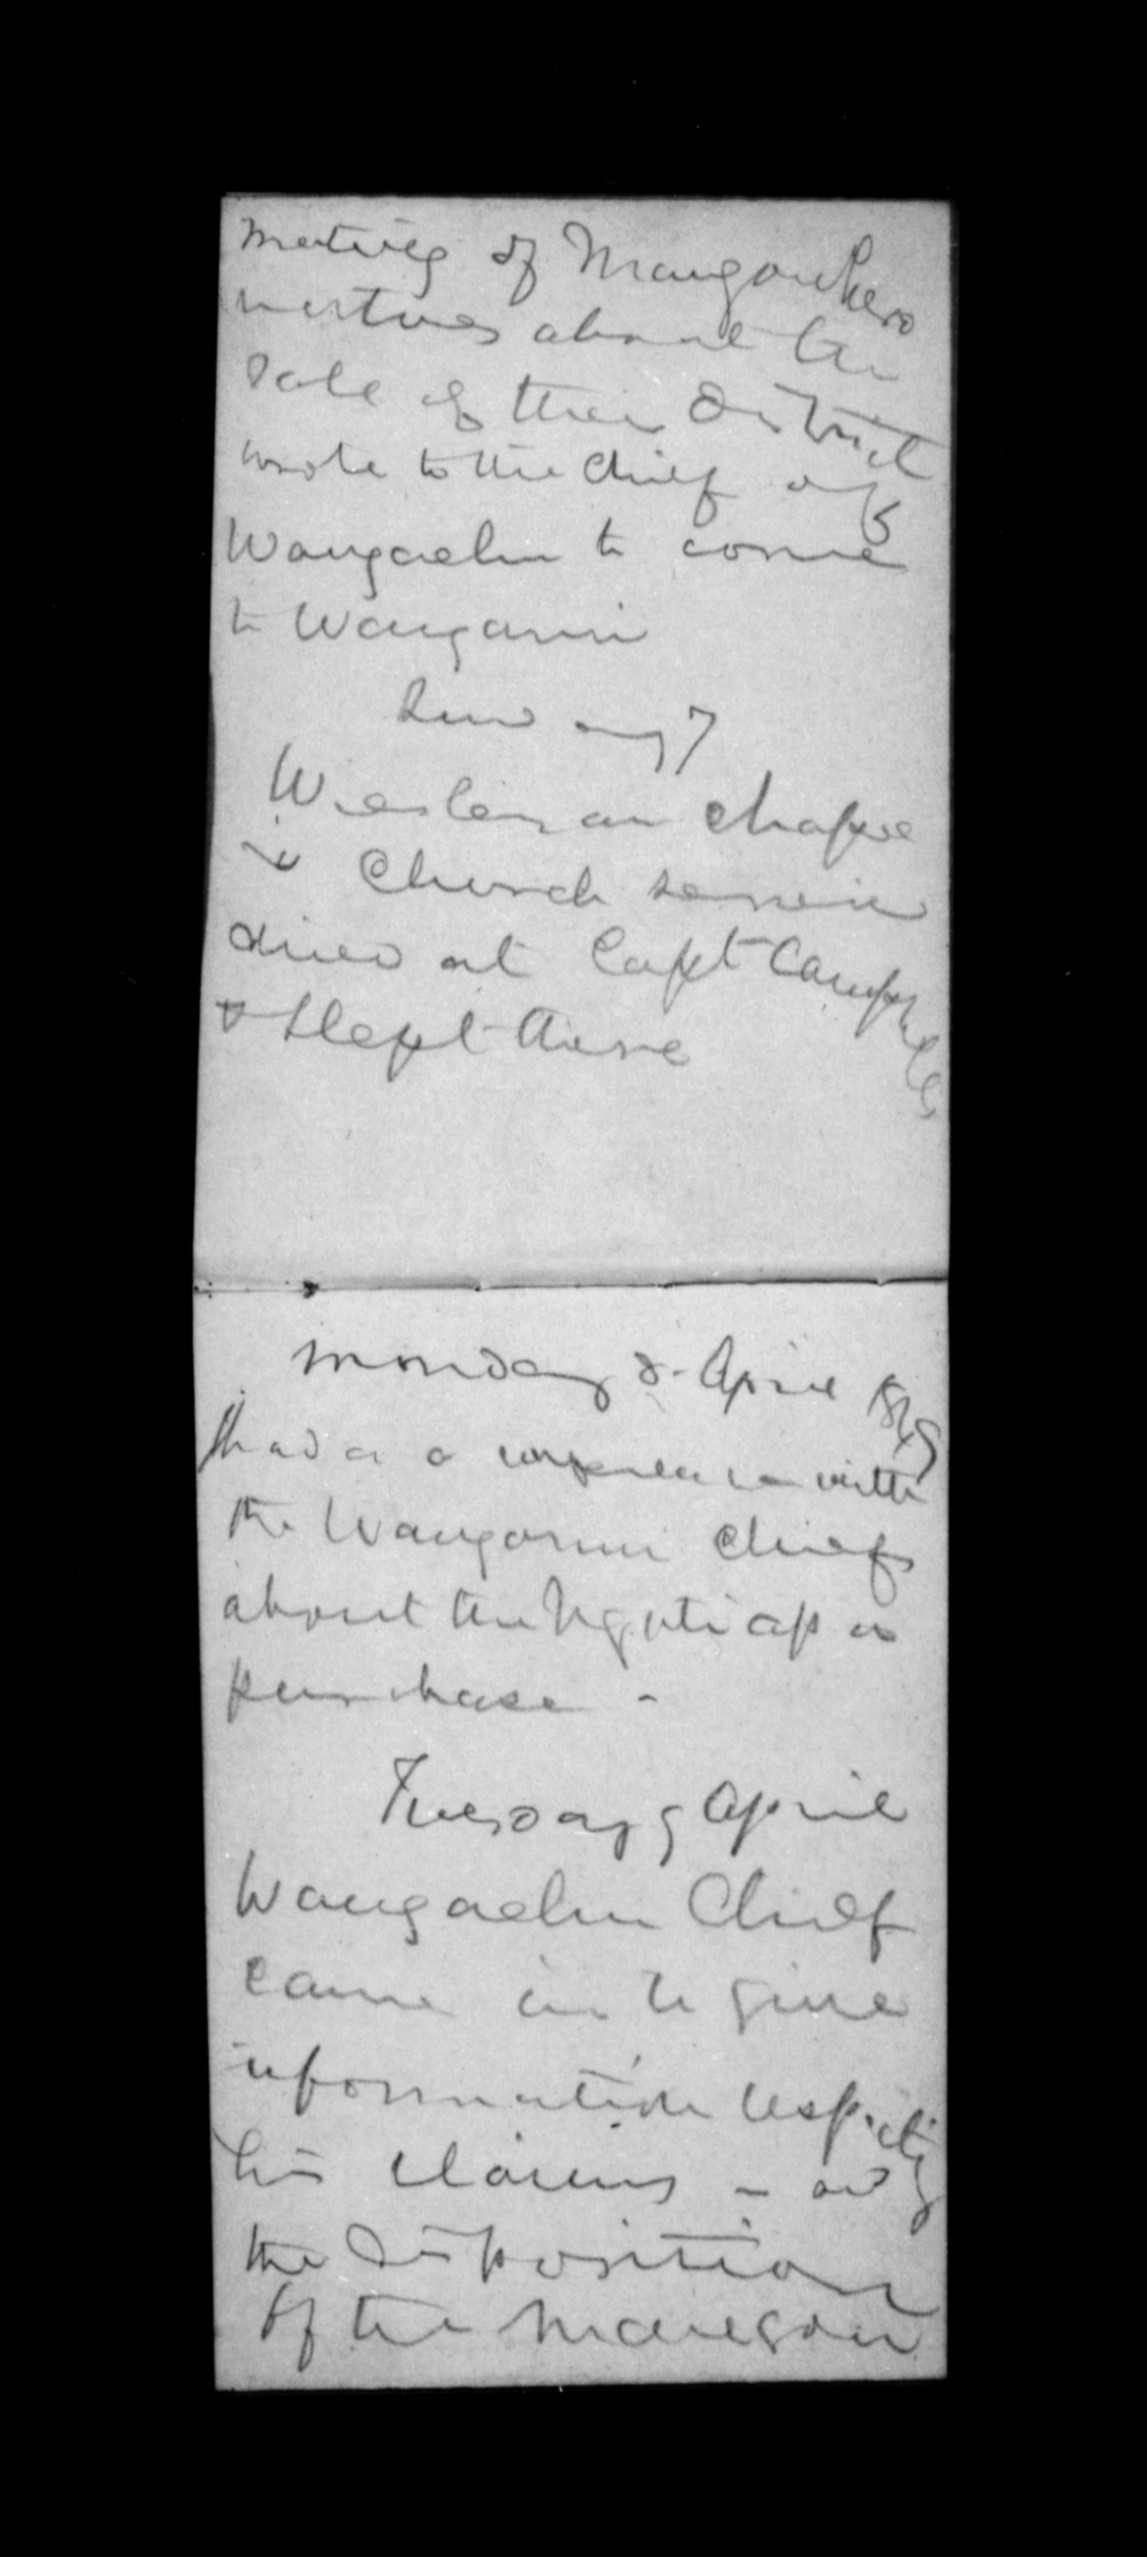 meeting of Mangawhero
natives about the
sale of their District
wrote to the Chief of
Wangaehu to come
to Wanganui
Sunday 7
Wesleyan Chapel
& Church service
dined at Capt Campbells
& slept there
Monday 8. April 1849
had a a conference with
the Wanganui chiefs
about the Ngatiapa
purchase -
Tuesday 9 April
Wangaehu Chief
came in to give
information respecting
his claims - and
the Disposition
of the Mangawh